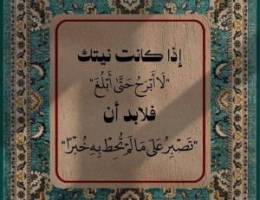 إذا كانت نيتك
"لَا أَبْرَحُ حَتَّىٰ أَبْلُغَ"
فلابد أن
"تَصْبِرُ عَلَىٰ مَا لَمْ تُحِطْ بِهِ خُبْرًا"